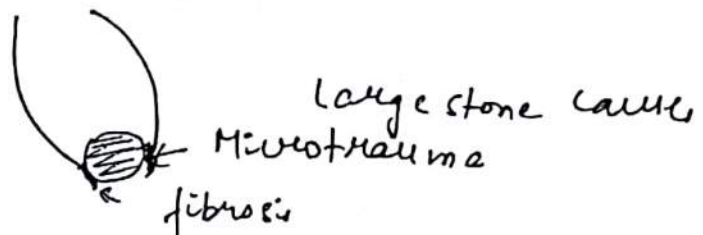 large stone causes
Microtrauma
fibrosis